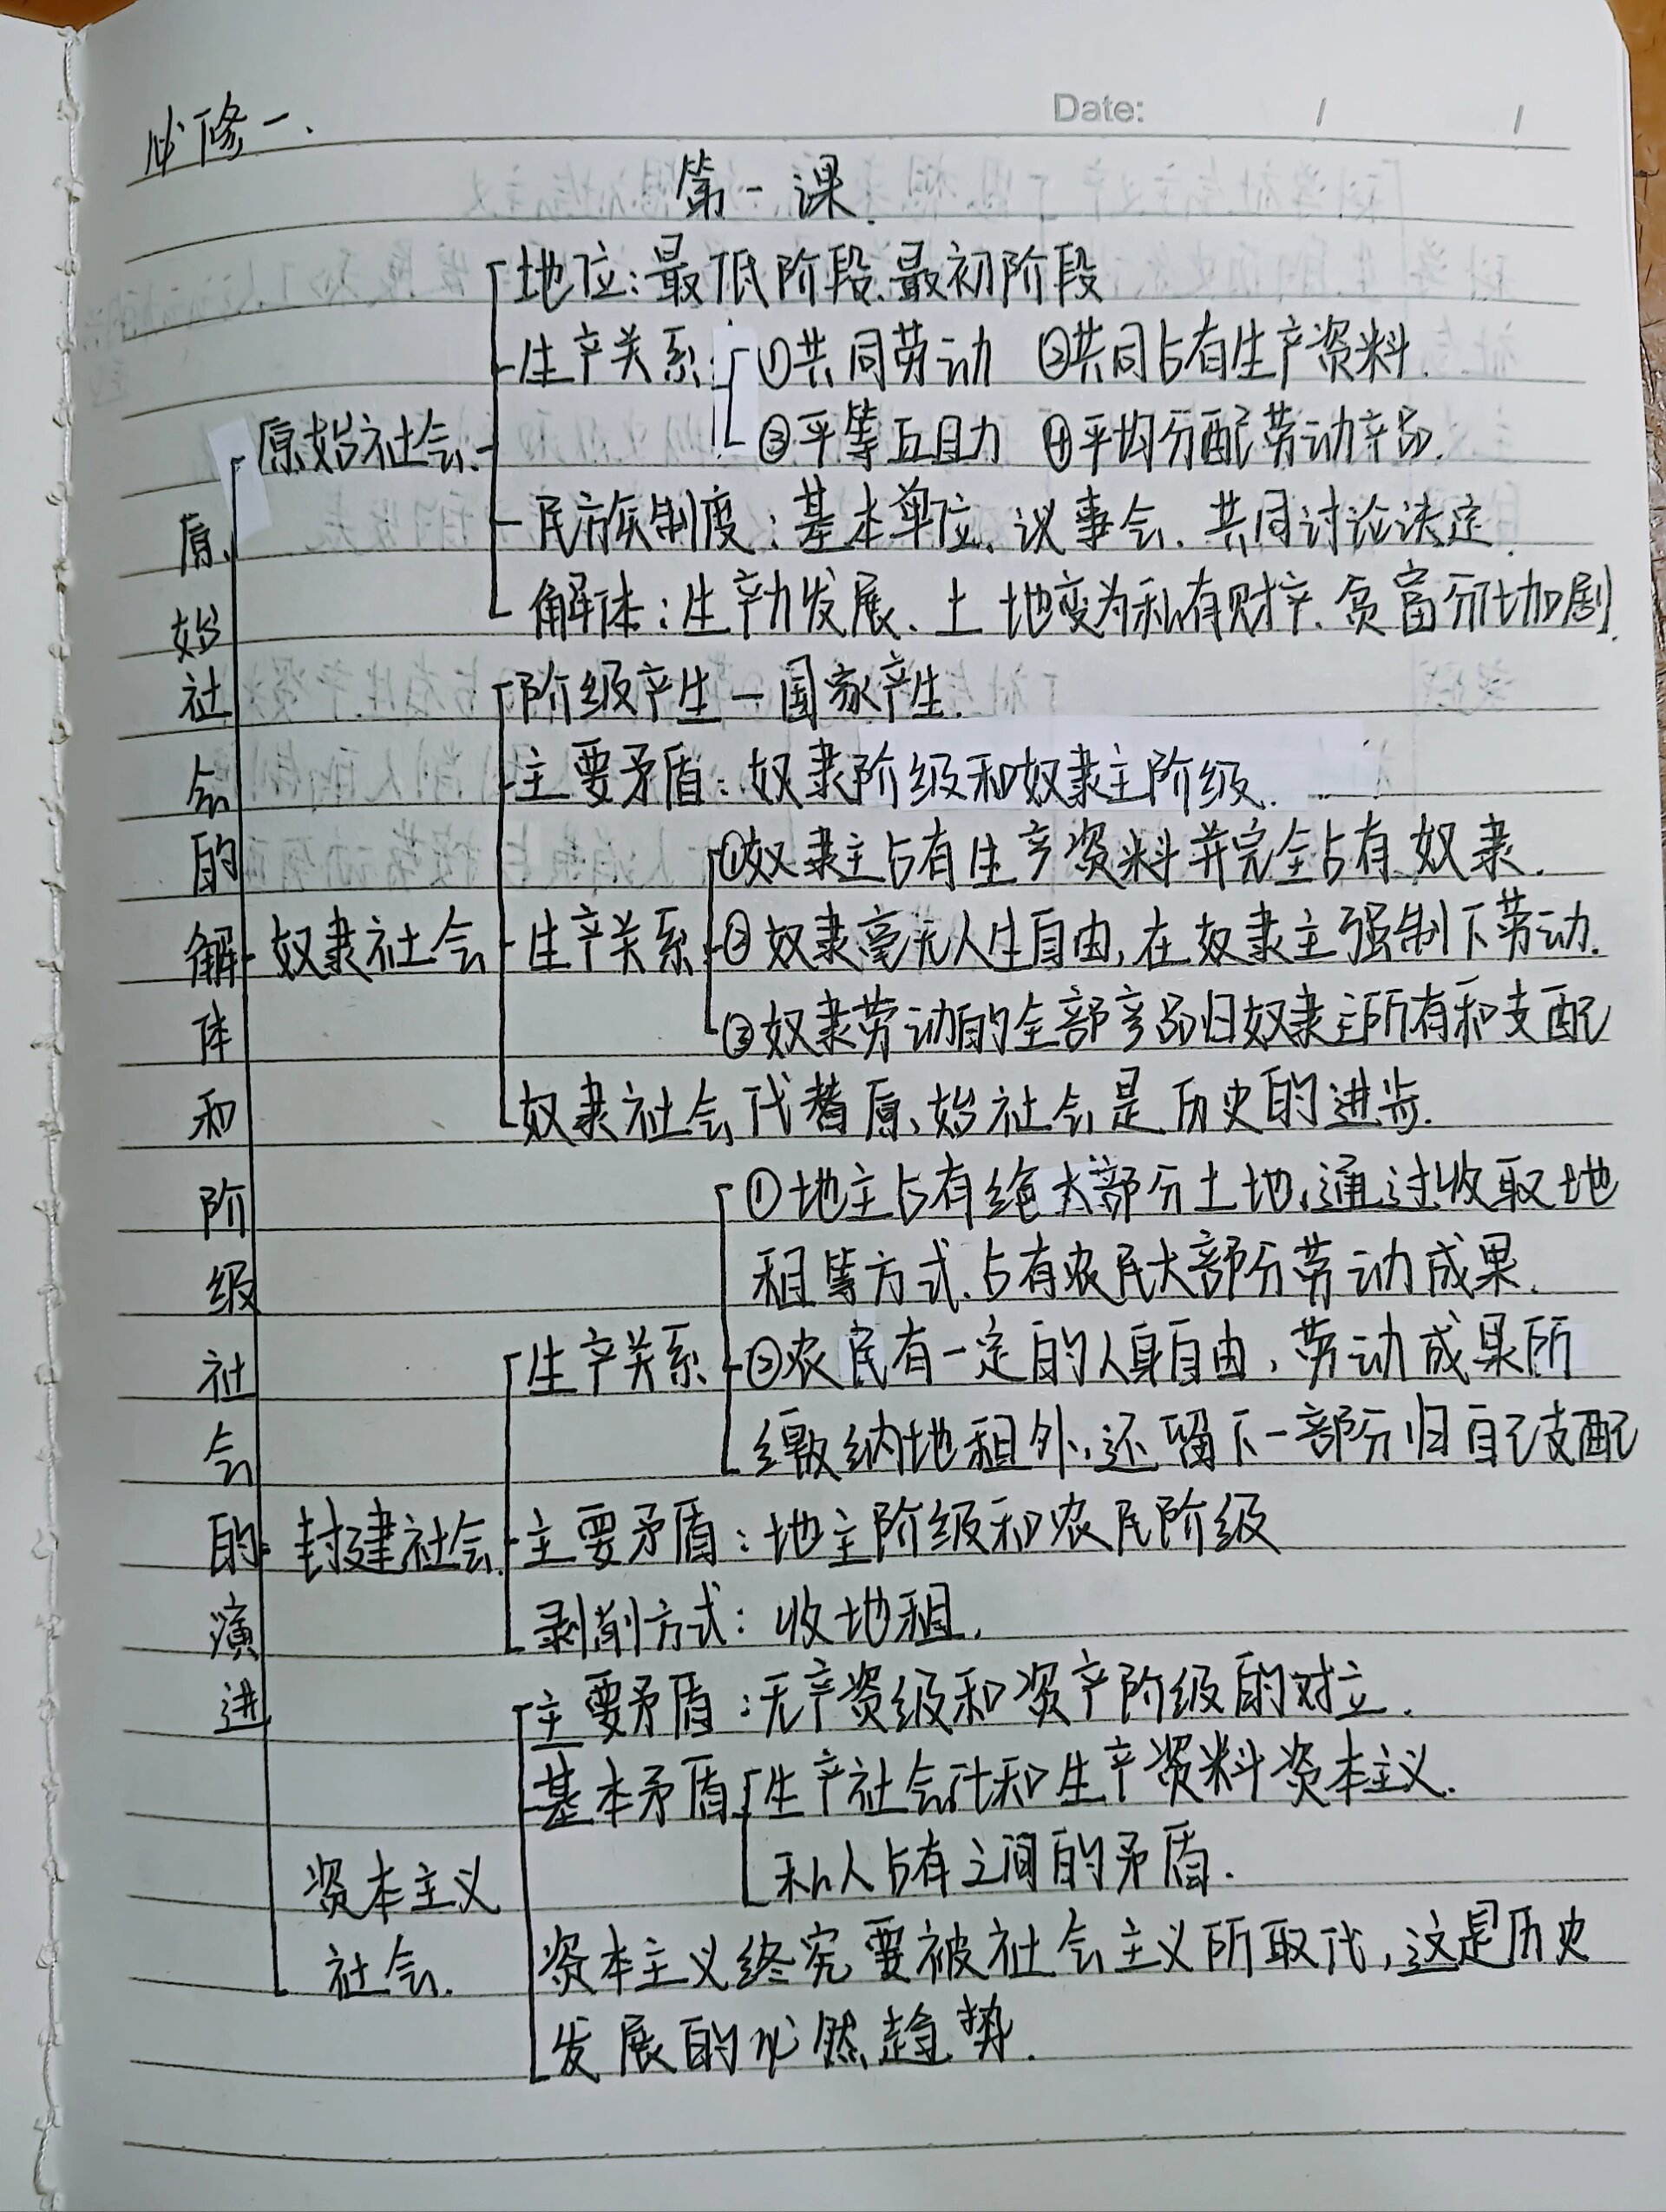 必修一.
Date: / /
第一课.
原始社会的解体和阶级社会的演进
原始社会.
地位:最低阶段、最初阶段
生产关系:①共同劳动 ②共同占有生产资料.
③平等互助 ④平均分配劳动产品.
民族制度:基本单位、议事会、共同讨论决定.
解体:生产力发展、土地变为私有财产、贫富分化加剧.
奴隶社会
阶级产生—国家产生.
主要矛盾:奴隶阶级和奴隶主阶级.
生产关系
①奴隶主占有生产资料并完全占有奴隶.
②奴隶毫无人生自由,在奴隶主强制下劳动.
③奴隶劳动的全部产品归奴隶主所有和支配
奴隶社会代替原始社会是历史的进步.
封建社会.
生产关系
①地主占有绝大部分土地,通过收取地
租等方式、占有农民大部分劳动成果.
②农民有一定的人身自由,劳动成果所
缴纳地租外,还留下一部分归自己支配
主要矛盾:地主阶级和农民阶级
剥削方式:收地租.
资本主义
社会.
主要矛盾:无产资级和资产阶级的对立.
基本矛盾
生产社会化和生产资料资本主义.
私人占有之间的矛盾.
资本主义终究要被社会主义所取代,这是历史
发展的必然趋势.